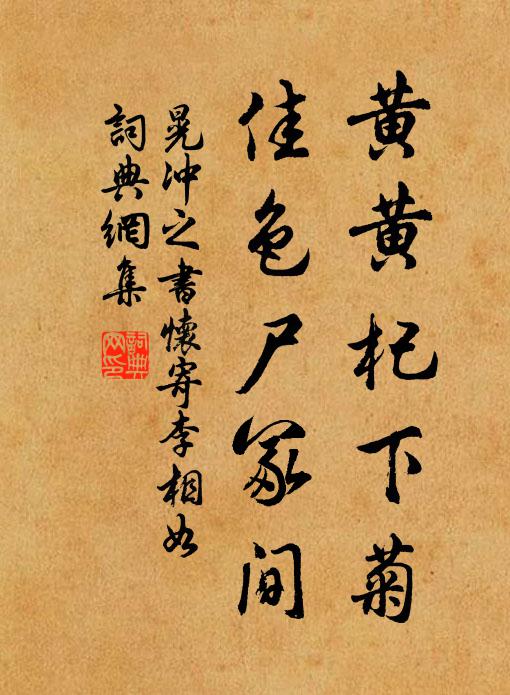 黄黄杞下菊
佳色尸冢间
晁冲之书懷寄李相如
詞典網集
詞典网印